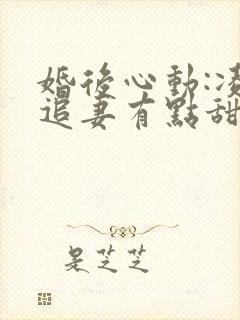 婚後心動:
追妻有點甜
是芝芝